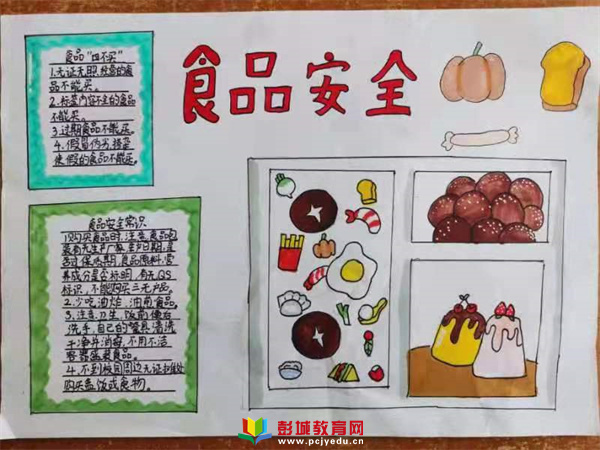 食品安全
食品“四不买”
1.无证无照经营的食
品不能买。
2.标签内容不全的食品
不能买。
3.过期食品不能买。
4.假冒伪劣、掺杂
使假的食品不能买。
食品安全常识
1.购买食品时,注意食品包
装有无生产厂家、生产日期,是
否过保质期,食品原料,营
养成分是否标明,有无QS
标识,不能购买三无产品。
2.少吃油炸、油煎食品。
3.注意卫生,饭前便后
洗手,自己的餐具清洗
干净并消毒,不用不洁
容器盛装食品。
4.不到校园周边无证摊收
购买盒饭或食物。
彭城教育网
www.pcjyedu.cn